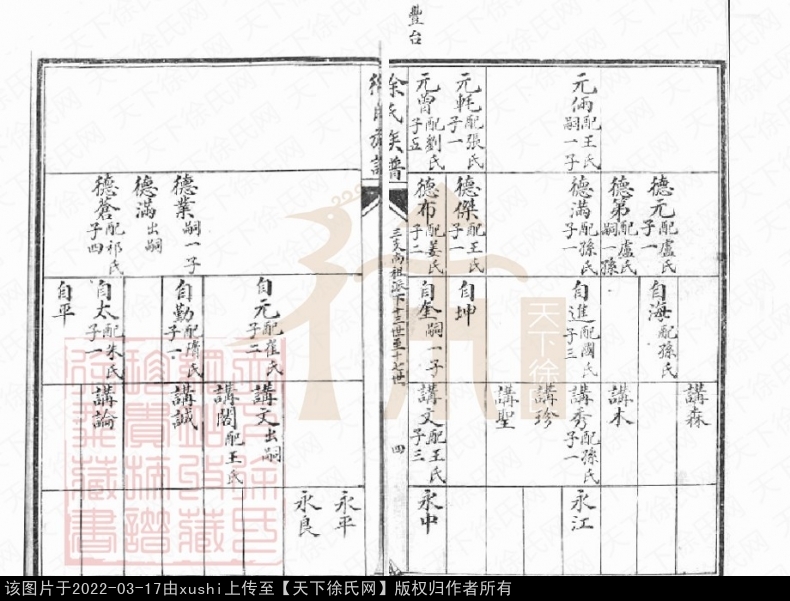 豐台
元俩配王氏
嗣一子
元軞配張氏
子一
元曾配劉氏
子五
德元配盧氏
子一
德第配盧氏
嗣一孫
德滿配孫氏
子一
德傑配王氏
子一
德布配姜氏
子二
自海配孫氏
自進配國氏
子三
自坤
自奎嗣一子
講森
講木
講秀配孫氏
子一
講珍
講聖
講文配王氏
子三
永江
永中
徐氏族譜
三支尚祖派下十三世至十七世
四
德業嗣一子
德滿出嗣
德蒼配祁氏
子四
自元配崔氏
子二
自勤配隋氏
子一
自太配朱氏
子一
自平
講文出嗣
講閣配王氏
講誠
講論
永平
永良
天下徐氏网
该图片于2022-03-17由xushi上传至【天下徐氏网】版权归作者所有